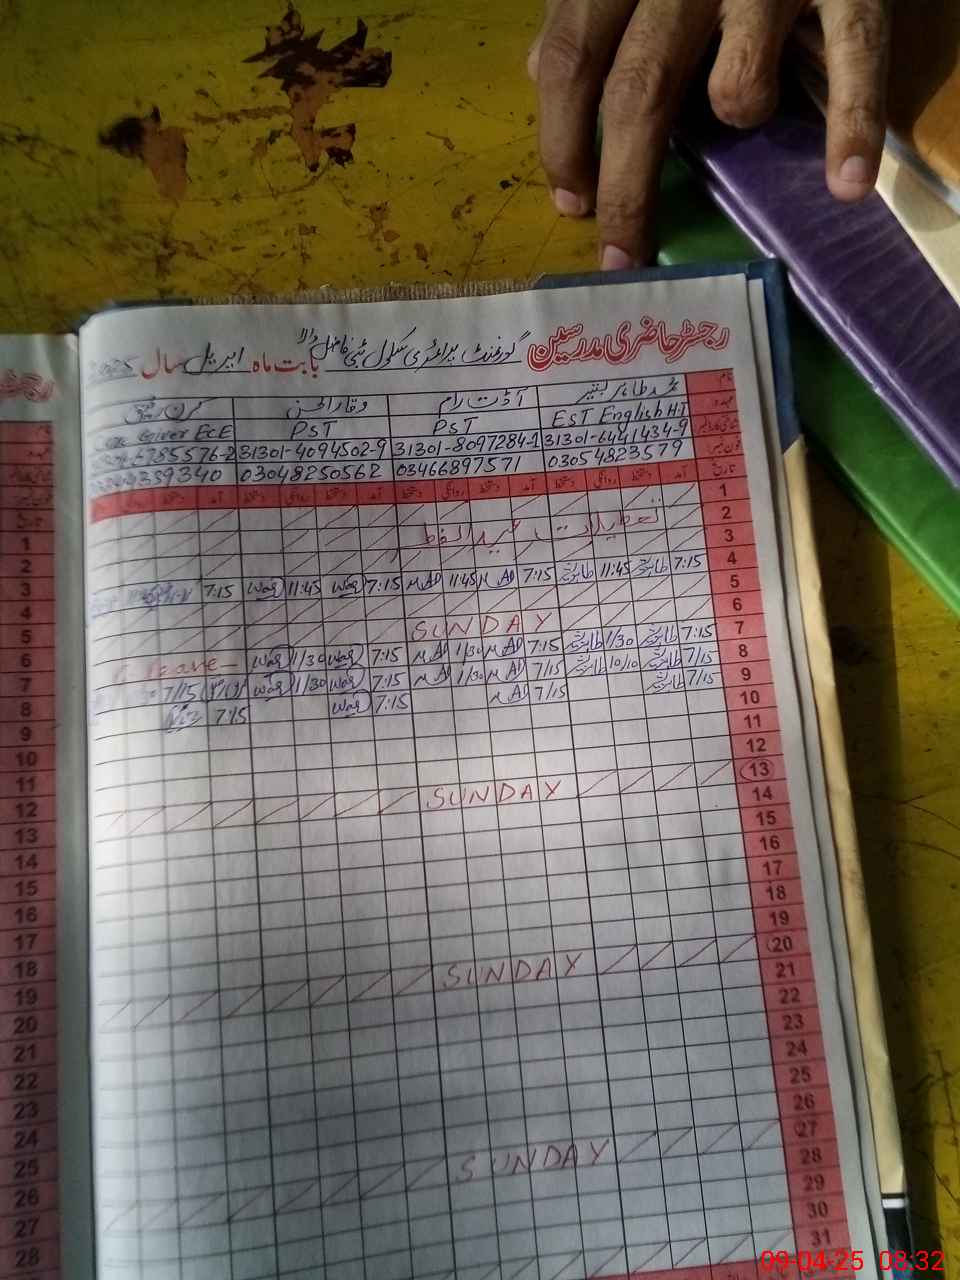 رجسٹر حاضری مدرسین گورنمنٹ پرائمری سکول بابت ماہ اپریل سال 2025
نام محمد طاہر آڈت رام وقار الحسن کرن
عہدہ EST English H.T PST PST Care Giver ECE
31301-6441434-9 31301-8097284-1 31301-4094502-9 5785576-2
فون نمبر 03054823579 03466897571 03048250562 359340
تاریخ آمد دستخط روانگی دستخط آمد دستخط روانگی دستخط آمد دستخط روانگی دستخط
1
2 تعطیلات عید الفطر
3
4
5 7:15 طاہر 11:45 طاہر 7:15 11:45 7:15 Waq 11:45 Waq 7:15
6 SUNDAY
7 7:15 طاہر 1/30 طاہر 7:15 1/30 7:15 Waq 1/30 Waq Leave
8 7/15 طاہر 10/10 طاہر 7/15 1/30 7:15 Waq 1/30 Waq 7/15
9 7/15 طاہر 7/15 7:15 Waq 7:15
10
11
12
13 SUNDAY
14
15
16
17
18
19
20 SUNDAY
21
22
23
24
25
26
27 SUNDAY
28
29
30
31
1
2
3
4
5
6
7
8
9
10
11
12
13
14
15
16
17
18
19
20
21
22
23
24
25
26
27
28
09-04-25 08:32